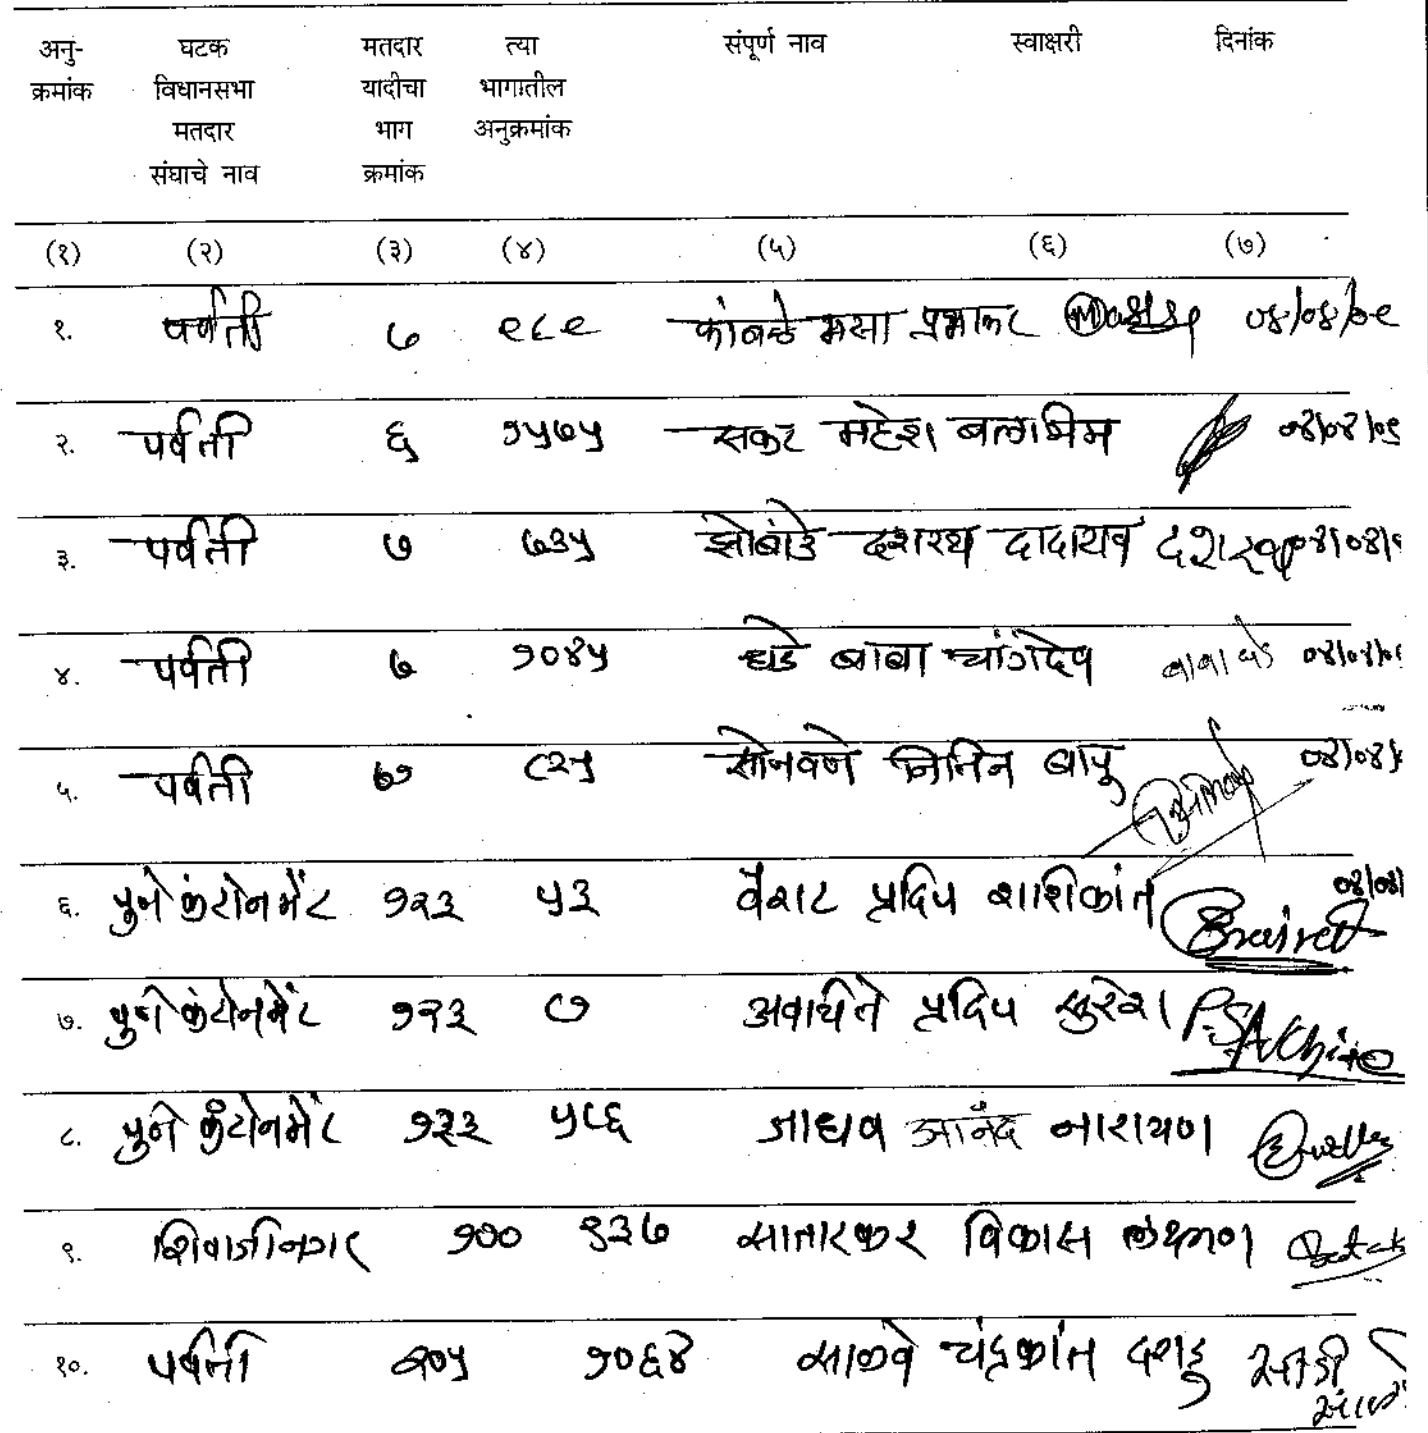 अनु- घटक मतदार त्या संपूर्ण नाव स्वाक्षरी दिनांक
क्रमांक विधानसभा यादीचा भागातील
मतदार भाग अनुक्रमांक
संघाचे नाव क्रमांक
(१) (२) (३) (४) (५) (६) (७)
१. पर्वती ७ ९८९ कांबळे प्रभाकर ०४/०४/०९
२. पर्वती ६ १५७५ सकट महेश बलभिम ०४/०४/०९
३. पर्वती ७ ७३५ झोंबाडे दशरथ दादाराव दशरथ ०४/०४/
४. पर्वती ७ १०४५ घडे बाबा चांगदेव बाबा घडे ०४/०४/०९
५. पर्वती ७ ८२५ सोनवणे नितिन बापु ०४/०४/
६. पुणे कंटोनमेंट १२३ ५३ वैराट प्रदिप शशिकांत ०४/०४/
७. पुणे कंटोनमेंट १२३ ८७ प्रदिप सुरेश
८. पुणे कंटोनमेंट १२३ ५८६ जाधव आनंद नारायण
९. शिवाजीनगर १०० ९३७ सातारकर विकास लक्ष्मण
१०. पर्वती २०५ १०६४ साळवे चंद्रकांत दगडु